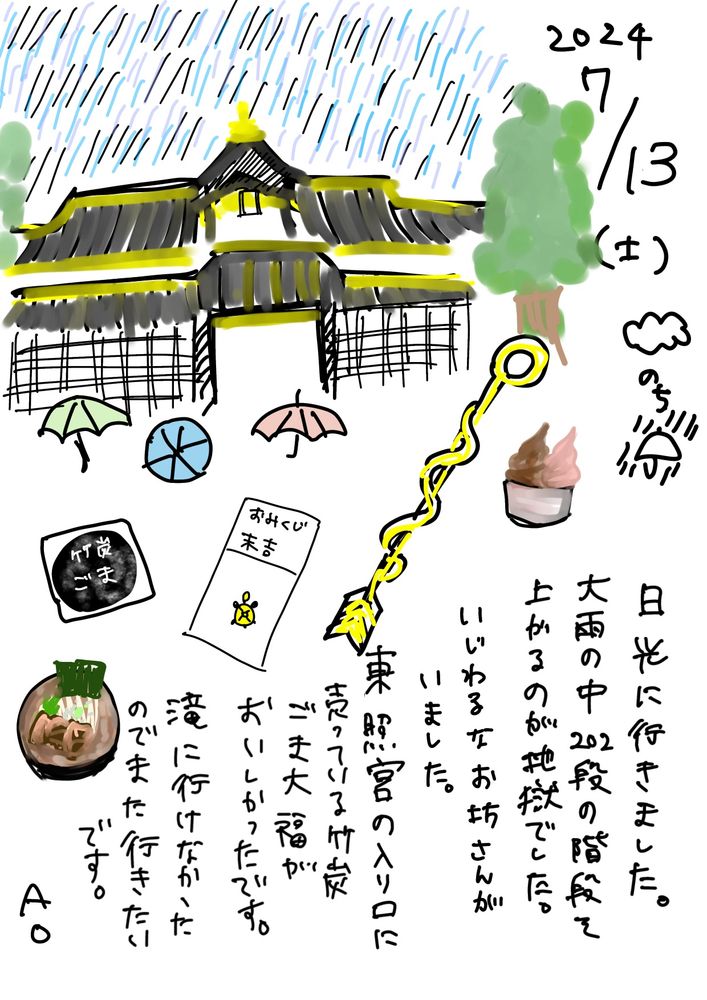 2024
7/13
(土)
のち
おみくじ
末吉
竹炭
ごま
日光に行きました。
大雨の中202段の階段を
上がるのが地獄でした。
いじわるなお坊さんが
いました。
東照宮の入り口に
売っている竹炭
ごま大福が
おいしかったです。
滝に行けなかった
のでまた行きたい
です。
AO